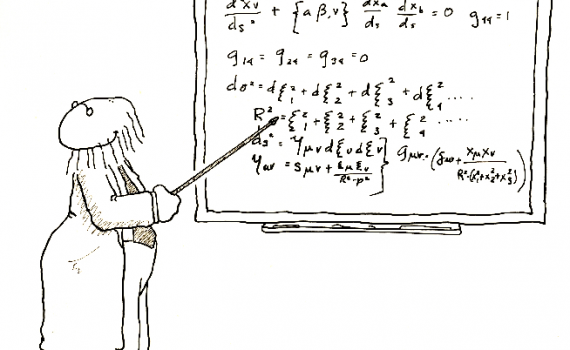 d²xν/ds² + {αβ,ν} dxa/ds dxb/ds = 0 g₄₄ = 1
g₁₄ = g₂₄ = g₃₄ = 0
dσ² = dξ₁² + dξ₂² + dξ₃² + dξ₄² ....
R² = ξ₁² + ξ₂² + ξ₃² + ξ₄² ....
ds² = γμν dξμ dξν
γμν = Sμν + ξμξν/R²-ρ² } gμν = (δμν + xμxν/R²-(x₁²+x₂²+x₃²))